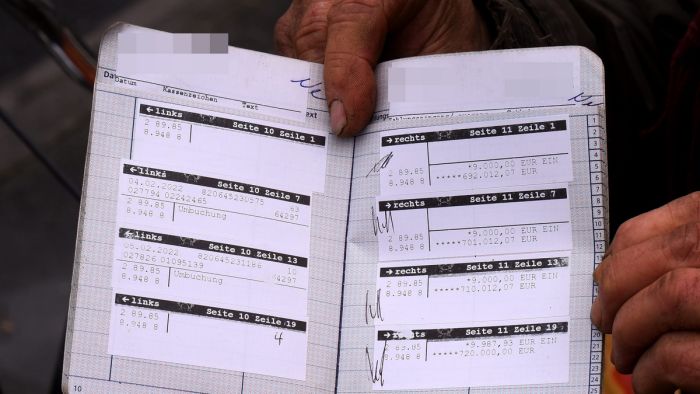 Datum Kassenzeichen Text
←links Seite 10 Zeile 1
2 89.85
8.948 8
←links Seite 10 Zeile 7
04.02.2022 820645230575 63
027794 02242465 64297
2 89.85 Umbuchung
8.948 8
←links Seite 10 Zeile 13
05.02.2022 820645231186 10
027826 01095139 64297
2 89.85 Umbuchung
8.948 8
←links Seite 10 Zeile 19
2 89.85
8.948 8
4
10
→rechts Seite 11 Zeile 1
*9.000,00 EUR EIN
2 89.85 *****692.012,07 EUR
8.948 8
→rechts Seite 11 Zeile 7
2 89.85 *****701.012,07 EUR
8.948 8
→rechts Seite 11 Zeile 13
*9.000,00 EUR EIN
2 89.85 *****710.012,07 EUR
8.948 8
rechts Seite 11 Zeile 19
2 89.85 *9.987,93 EUR EIN
8.948 8 *****720.000,00 EUR
1
2
3
4
5
6
7
8
9
10
11
12
13
14
15
16
21
22
23
24
25